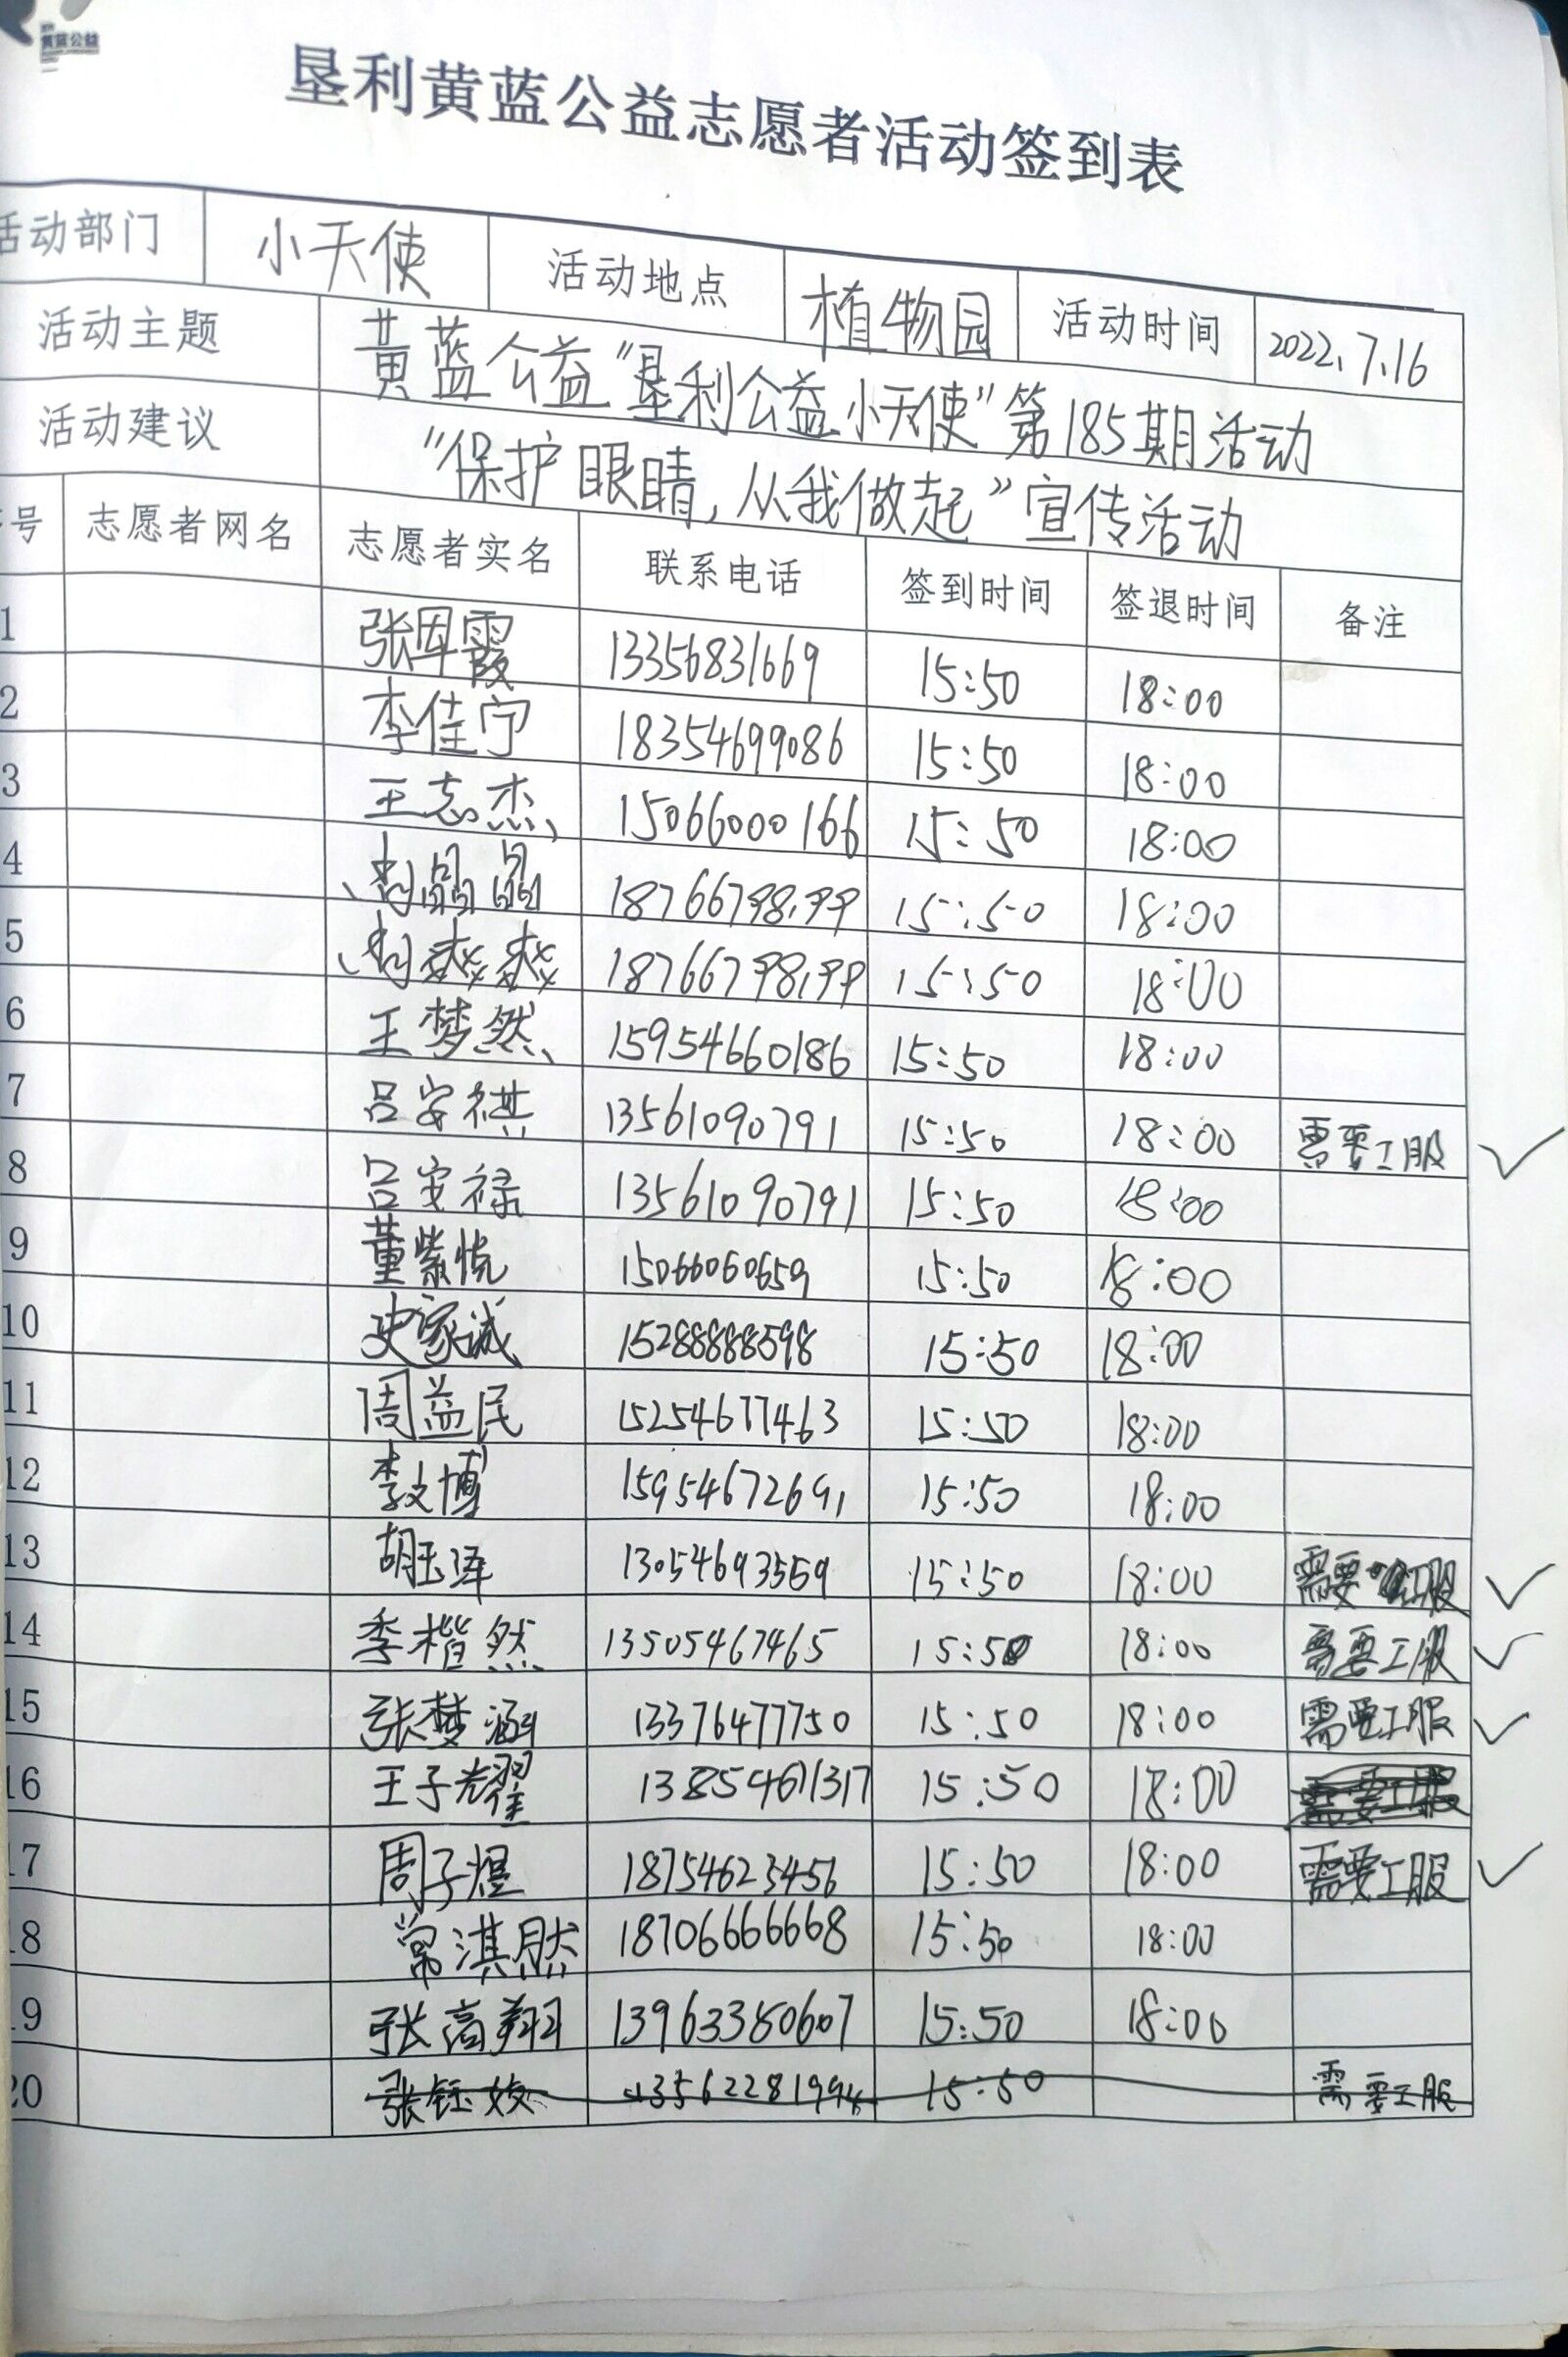 黄蓝公益
垦利黄蓝公益志愿者活动签到表
活动部门 小天使 活动地点 植物园 活动时间 2022.7.16
活动主题 黄蓝公益“垦利公益小天使”第185期活动
活动建议 “保护眼睛,从我做起”宣传活动
号 志愿者网名 志愿者实名 联系电话 签到时间 签退时间 备注
1 张军霞 13356831669 15:50 18:00
2 李佳宁 18354699086 15:50 18:00
3 王志杰 15066000166 15:50 18:00
4 晶晶 15:50 18:00
5 15:50 18:00
6 王梦然 15954660186 15:50 18:00
7 吕安祺 13561090791 15:50 18:00 需要工服 ✓
8 吕安禄 13561090791 15:50 18:00
9 董紫悦 15066060659 15:50 18:00
10 史家诚 15288888598 15:50 18:00
11 周益民 15254677463 15:50 18:00
12 李文博 15954672691 15:50 18:00
13 胡玉泽 13054693559 15:50 18:00 需要工服 ✓
14 李楷然 13505467465 15:50 18:00 需要工服 ✓
15 张梦涵 13376477750 15:50 18:00 需要工服 ✓
16 王子耀 13854671317 15:50 18:00 需要工服
17 周子煜 18754623456 15:50 18:00 需要工服 ✓
18 常淇然 18706666668 15:50 18:00
19 张高翔 13963350607 15:50 18:00
20 张钰姣 13562281994 15:50 需要工服